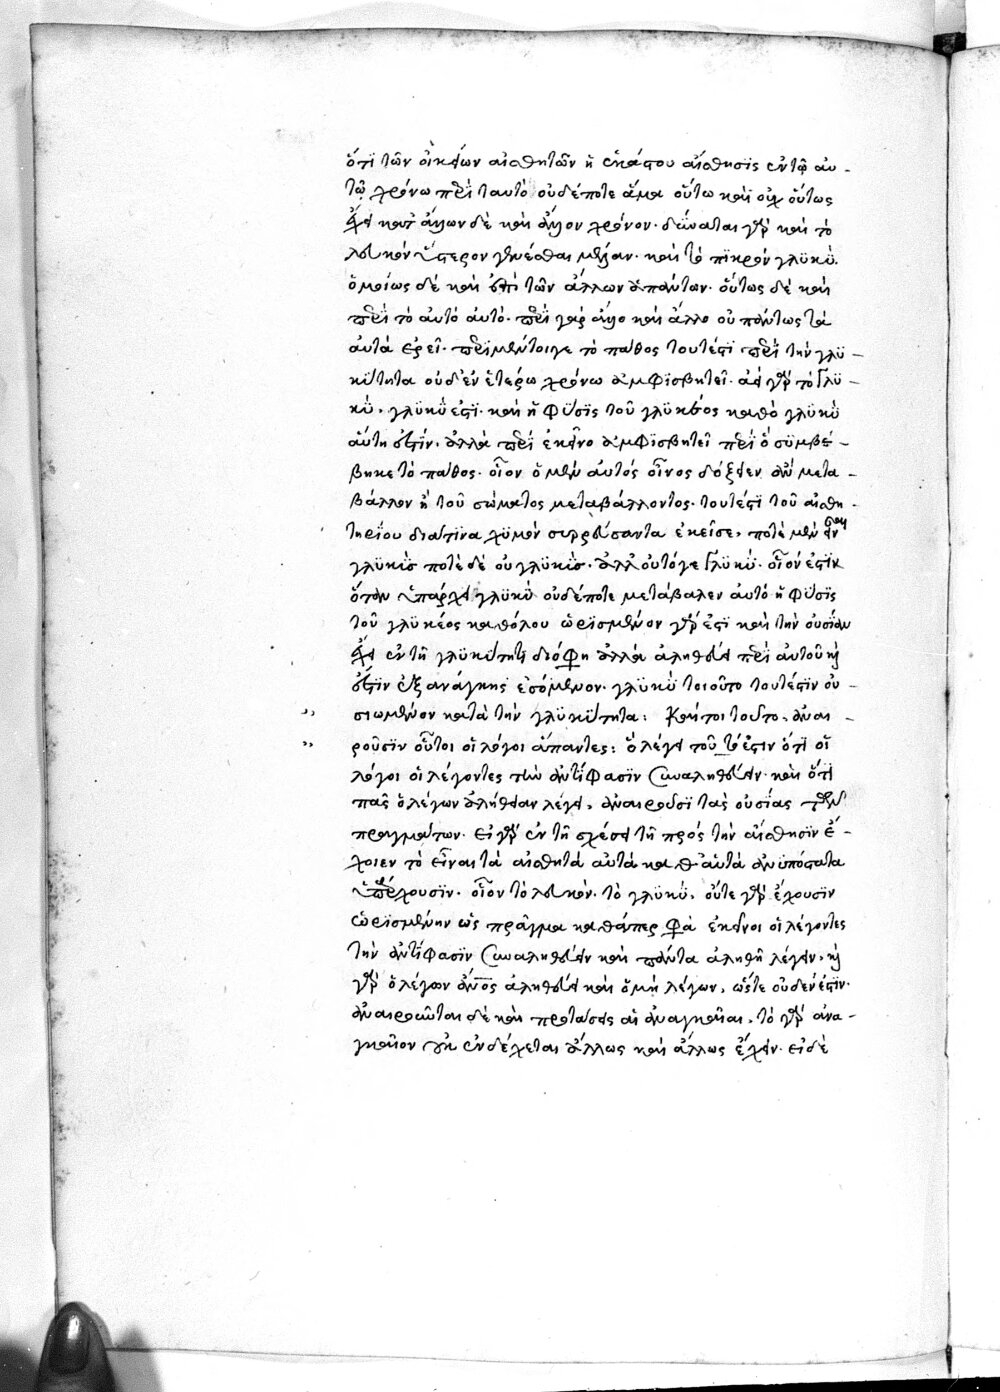 ὅτι τῶν οἰκείων αἰσθητῶν ἡ ἑκάστου αἴσθησις ἐν τῷ αυ-
τῷ χρόνω περὶ ταυτὸ οὐδέποτε ἅμα οὕτω καὶ οὐχ οὕτως
ἔχει κατ' ἄλλων δὲ καὶ ἄλλον χρόνον· δύναται γὰρ καὶ τὸ
λευκὸν ὕστερον γενέσθαι μέλαν· καὶ τὸ πικρὸν γλυκὺ.
ὁμοίως δὲ καὶ ἐπὶ τῶν ἄλλων ἁπάντων· οὕτως δὲ καὶ
περὶ τὸ αὐτὸ αὐτό· περὶ γὰρ ἄλλο καὶ ἄλλο οὐ πάντως τὰ
αὐτὰ ἐρεῖ· περὶ μέντοιγε τὸ πάθος τουτέστι περὶ τὴν γλυ-
κύτητα οὐδ' ἐν ἑτέρω χρόνω ἀμφισβητεῖ· ἀεὶ γὰρ τὸ γλυ-
κὺ, γλυκύ ἐστι· καὶ ἡ φύσις τοῦ γλυκέος καθὸ γλυκὺ
αὕτη ἐστίν· ἀλλὰ περὶ ἐκεῖνο ἀμφισβητεῖ περὶ ὃ συμβέ-
βηκε τὸ πάθος· οἷον ὁ μὲν αὐτὸς οἶνος δόξειεν ἂν μετα-
βάλλον ἢ τοῦ σώματος μεταβάλλοντος· τουτέστι τοῦ αἰσθη-
τηρίου διά τινα χυμὸν συρρεύσαντα ἐκεῖσε, ποτὲ μὲν εἶναι
γλυκὺς ποτὲ δὲ οὐ γλυκὺς· ἀλλ' οὐ τόγε γλυκὺ· οἷόν ἐστιν
ὅταν ὑπάρχει γλυκὺ οὐδέποτε μετάβαλεν αὐτὸ ἡ φύσις
τοῦ γλυκέος καθόλου ὡρισμένον γάρ ἐστι καὶ τὴν οὐσίαν
ἔχει ἐν τῆ γλυκύτητι ἀλλὰ ἀληθεύει περὶ αὐτοῦ καὶ
ἐστὶν ἐξ ἀνάγκης ἐσόμενον· γλυκὺ τοιοῦτο τουτέστιν οὐ-
σιωμένον κατὰ τὴν γλυκύτητα: Καίτοι τοῦτο ἀναι-
ροῦσιν οὗτοι οἱ λόγοι ἅπαντες: ὃ λέγει τοῦτό ἐστιν ὅτι οἱ
λόγοι οἱ λέγοντες τὴν ἀντίφασιν συναληθεύειν· καὶ ὅτι
πᾶς ὁ λέγων ἀλήθειαν λέγει, ἀναιροῦσι τὰς οὐσίας τῶν
πραγμάτων· εἰ γὰρ ἐν τῆ σχέσει τῆ πρὸς τὴν αἴσθησιν ἔ-
χοιεν τὸ εἶναι τὰ αἰσθητὰ αὐτὰ καθ' αὑτὰ ἀνυπόστατα
ὑπάρχουσιν· οἷον τὸ λευκόν· τὸ γλυκὺ, οὔτε γὰρ ἔχουσιν
ὡρισμένην ὡς πρᾶγμα καθάπερ φασὶ ἐκεῖνοι οἱ λέγοντες
τὴν ἀντίφασιν συναληθεύειν καὶ πάντα ἀληθῆ λέγειν, καὶ
γὰρ ὁ λέγων ἄνος ἀληθεύει καὶ ὁ μὴ λέγων, ὥστε οὐδέν ἐστιν·
ἀναιροῦνται δὲ καὶ προτάσεις αἱ ἀναγκαῖαι, τὸ γὰρ ἀνα-
γκαῖον οὐκ ἐνδέχεται ἄλλως καὶ ἄλλως ἔχειν· εἰ δὲ